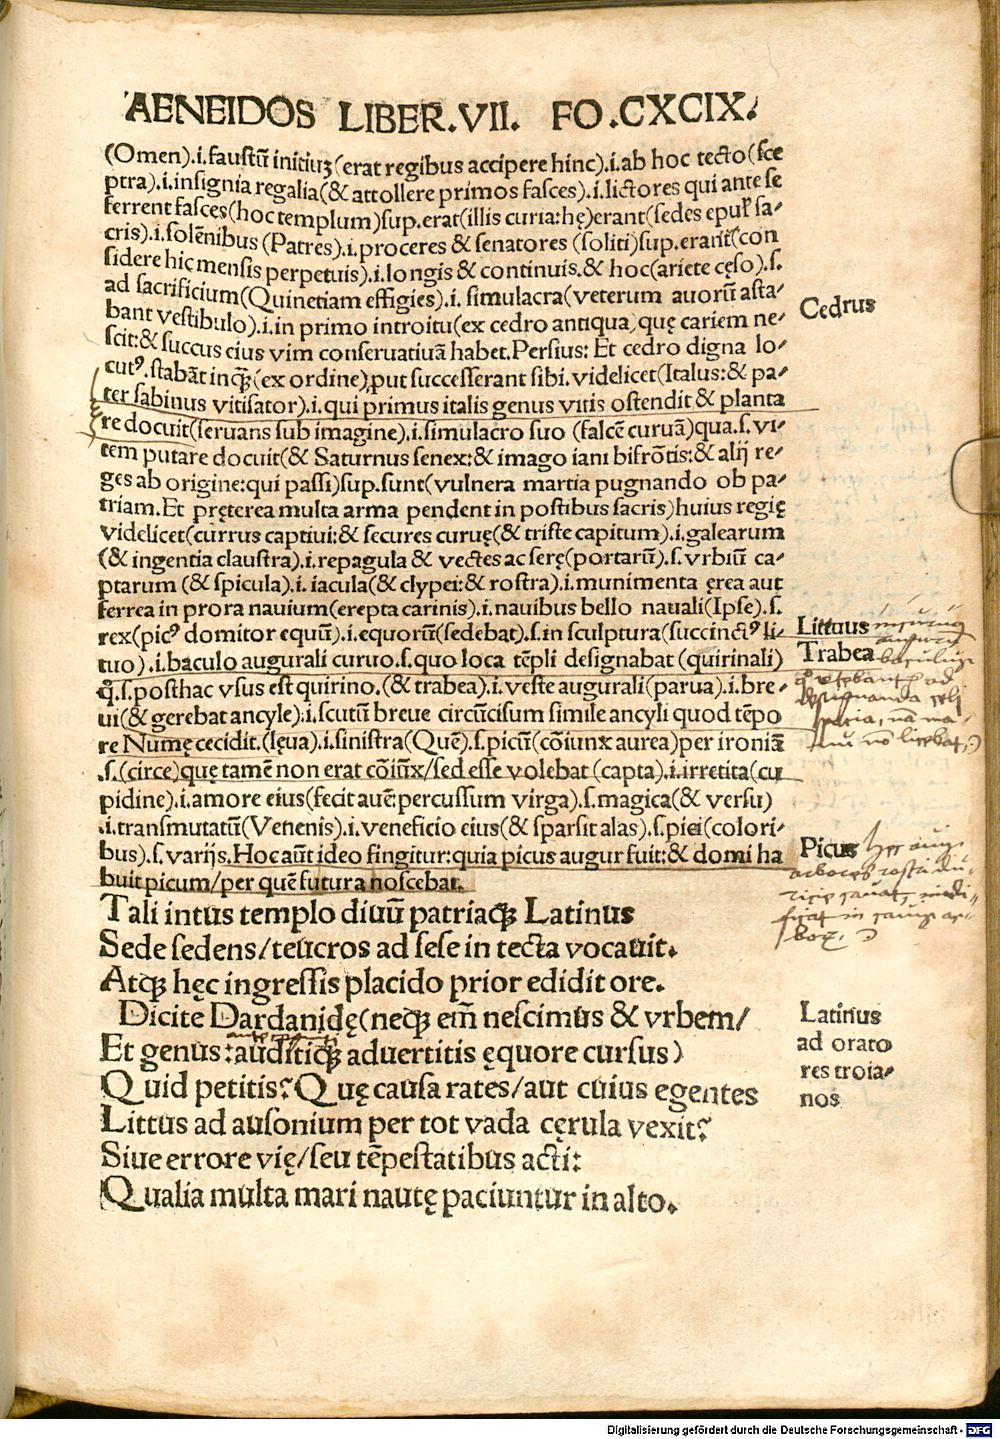 AENEIDOS LIBER.VII. FO.CXCIX.
(Omen).i.faustũ initiuʒ(erat regibus accipere hinc).i.ab hoc tecto(sce
ptra).i.insignia regalia(& attollere primos fasces).i.lictores qui ante se
ferrent fasces(hoc templum)sup.erat(illis curia:hę)erant(sedes epuł sa/
cris).i.solẽnibus (Patres).i.proceres & senatores (soliti)sup.erant(con
sidere hic mensis perpetuis).i.longis & continuis.& hoc(ariete cęso).s.
ad sacrificium(Quinetiam effigies).i. simulacra(veterum auorũ asta/
bant vestibulo).i.in primo introitu(ex cedro antiqua)quę cariem ne/
scit:& succus eius vim conseruatiuã habet.Persius: Et cedro digna lo/
cutꝰ.stabãt inqꝫ(ex ordine),put successerant sibi.videlicet(Italus:& pa/
ter sabinus vitisator).i.qui primus italis genus vitis ostendit & planta
re docuit(seruans sub imagine).i.simulacro suo (falcẽ curuã)qua.s.vi/
tem putare docuit(& Saturnus senex:& imago iani bifrõtis:& alij re/
ges ab origine:qui passi)sup.sunt(vulnera martia pugnando ob pa/
triam.Et pręterea multa arma pendent in postibus sacris)huius regię
videlicet(currus captiui:& secures curuę(& triste capitum).i.galearum
(& ingentia claustra).i.repagula & vectes ac serę(portarũ).s.vrbiũ ca/
ptarum (& spicula).i.iacula(& clypei:& rostra).i.munimenta ęrea aut
ferrea in prora nauium(erepta carinis).i.nauibus bello nauali(Ipse).s.
rex(picꝰ domitor equũ).i.equorũ(sedebat).s.in sculptura(succinctꝰ li/
tuo).i.baculo augurali curuo.s.quo loca tẽpli designabat (quirinali)
q̃.s.posthac vsus est quirino.(& trabea).i.veste augurali(parua).i.bre/
ui(& gerebat ancyle).i.scutũ breue circũcisum simile ancyli quod tẽpo
re Numę cecidit.(lęua).i.sinistra(Quẽ).s.picũ(cõiunx aurea)per ironiã
.s.(circe)quę tamẽ non erat cõiũx/sed esse volebat (capta).i.irretita(cu
pidine).i.amore eius(fecit auẽ:percussum virga).s.magica(& versũ)
.i.transmutatũ(Venenis).i.veneficio eius(& sparsit alas).s.pici(colori/
bus).s.varijs.Hoc aũt ideo fingitur:quia picus augur fuit:& domi ha
buit picum/per quẽ futura noscebat.
Tali intus templo diuũ patriaqꝫ Latinus
Sede sedens/teucros ad sese in tecta vocauit.
Atqꝫ hęc ingressis placido prior edidit ore.
Dicite Dardanidę(neqꝫ em̃ nescimus & vrbem/
Et genus:auditiqꝫ aduertitis ęquore cursus)
Quid petitis? Quę causa rates/aut cuius egentes
Littus ad ausonium per tot vada cęrula vexit?
Siue errore vię/seu tẽpestatibus acti:
Qualia multa mari nautę paciuntur in alto.
Cedrus
Lituus
Trabea
Picus
Latinus
ad orato
res troia/
nos
Digitalisierung gefördert durch die Deutsche Forschungsgemeinschaft - DFG